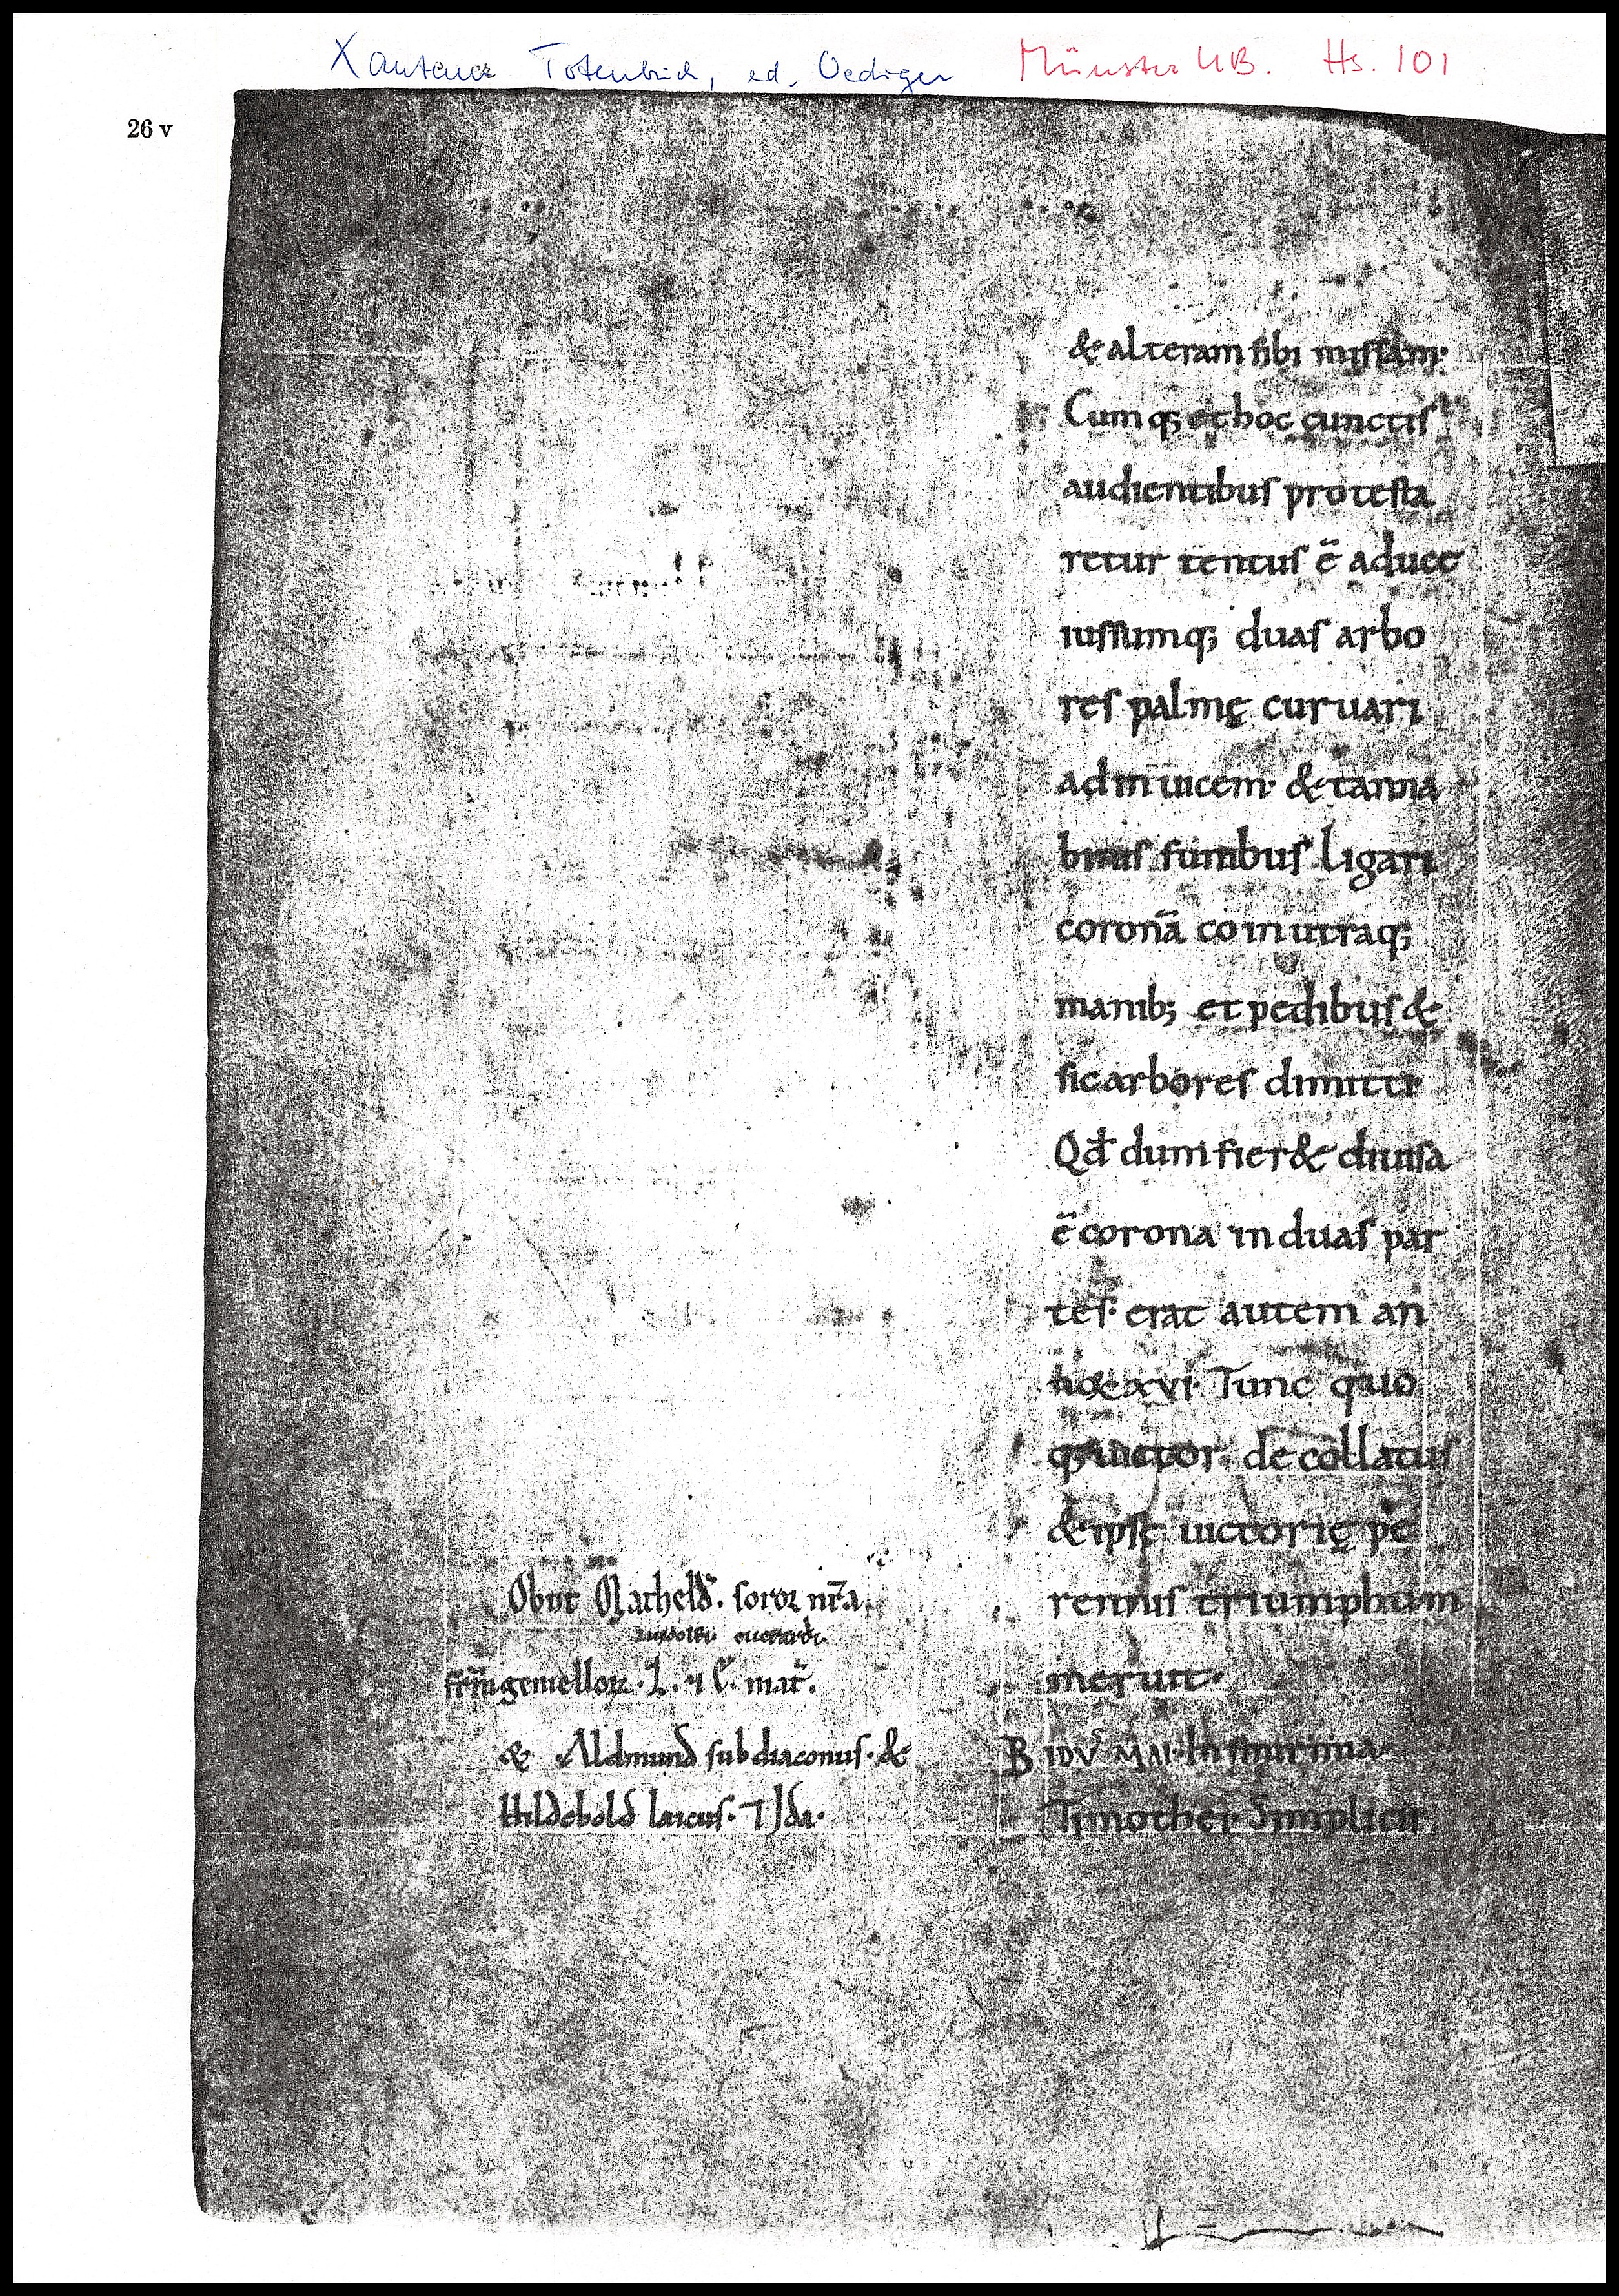 Xantener Totenbuch, ed. Oediger Münster UB. Hs. 101
26 v
& alteram sibi missam·
Cumq; et hoc cunctis
audientibus protesta
retur tentus ē aduec
iussumq; duas arbo
res palmę curuari
adinuicem· & tanna
binis funibus ligari
coronā co in utraq;
manib; et pedibus &
sic arbores dimitti
Qđ dum fier& diuisa
ē corona in duas par
tes· erat autem an
xvi· Tunc quo
q; uictor· decollatus
& ipse uictorię pe
rennis triumphum
meruit·
B IDVˢ MAI·
Timothei· Simplicii
Obiit Mathelđ· soror nr̄a
euerardi·
fr̄m gemelloꝝ· L· ⁊ E· mat̄·
& Aldmund subdiaconus· &
Hildebold laicus· ⁊ Jda·